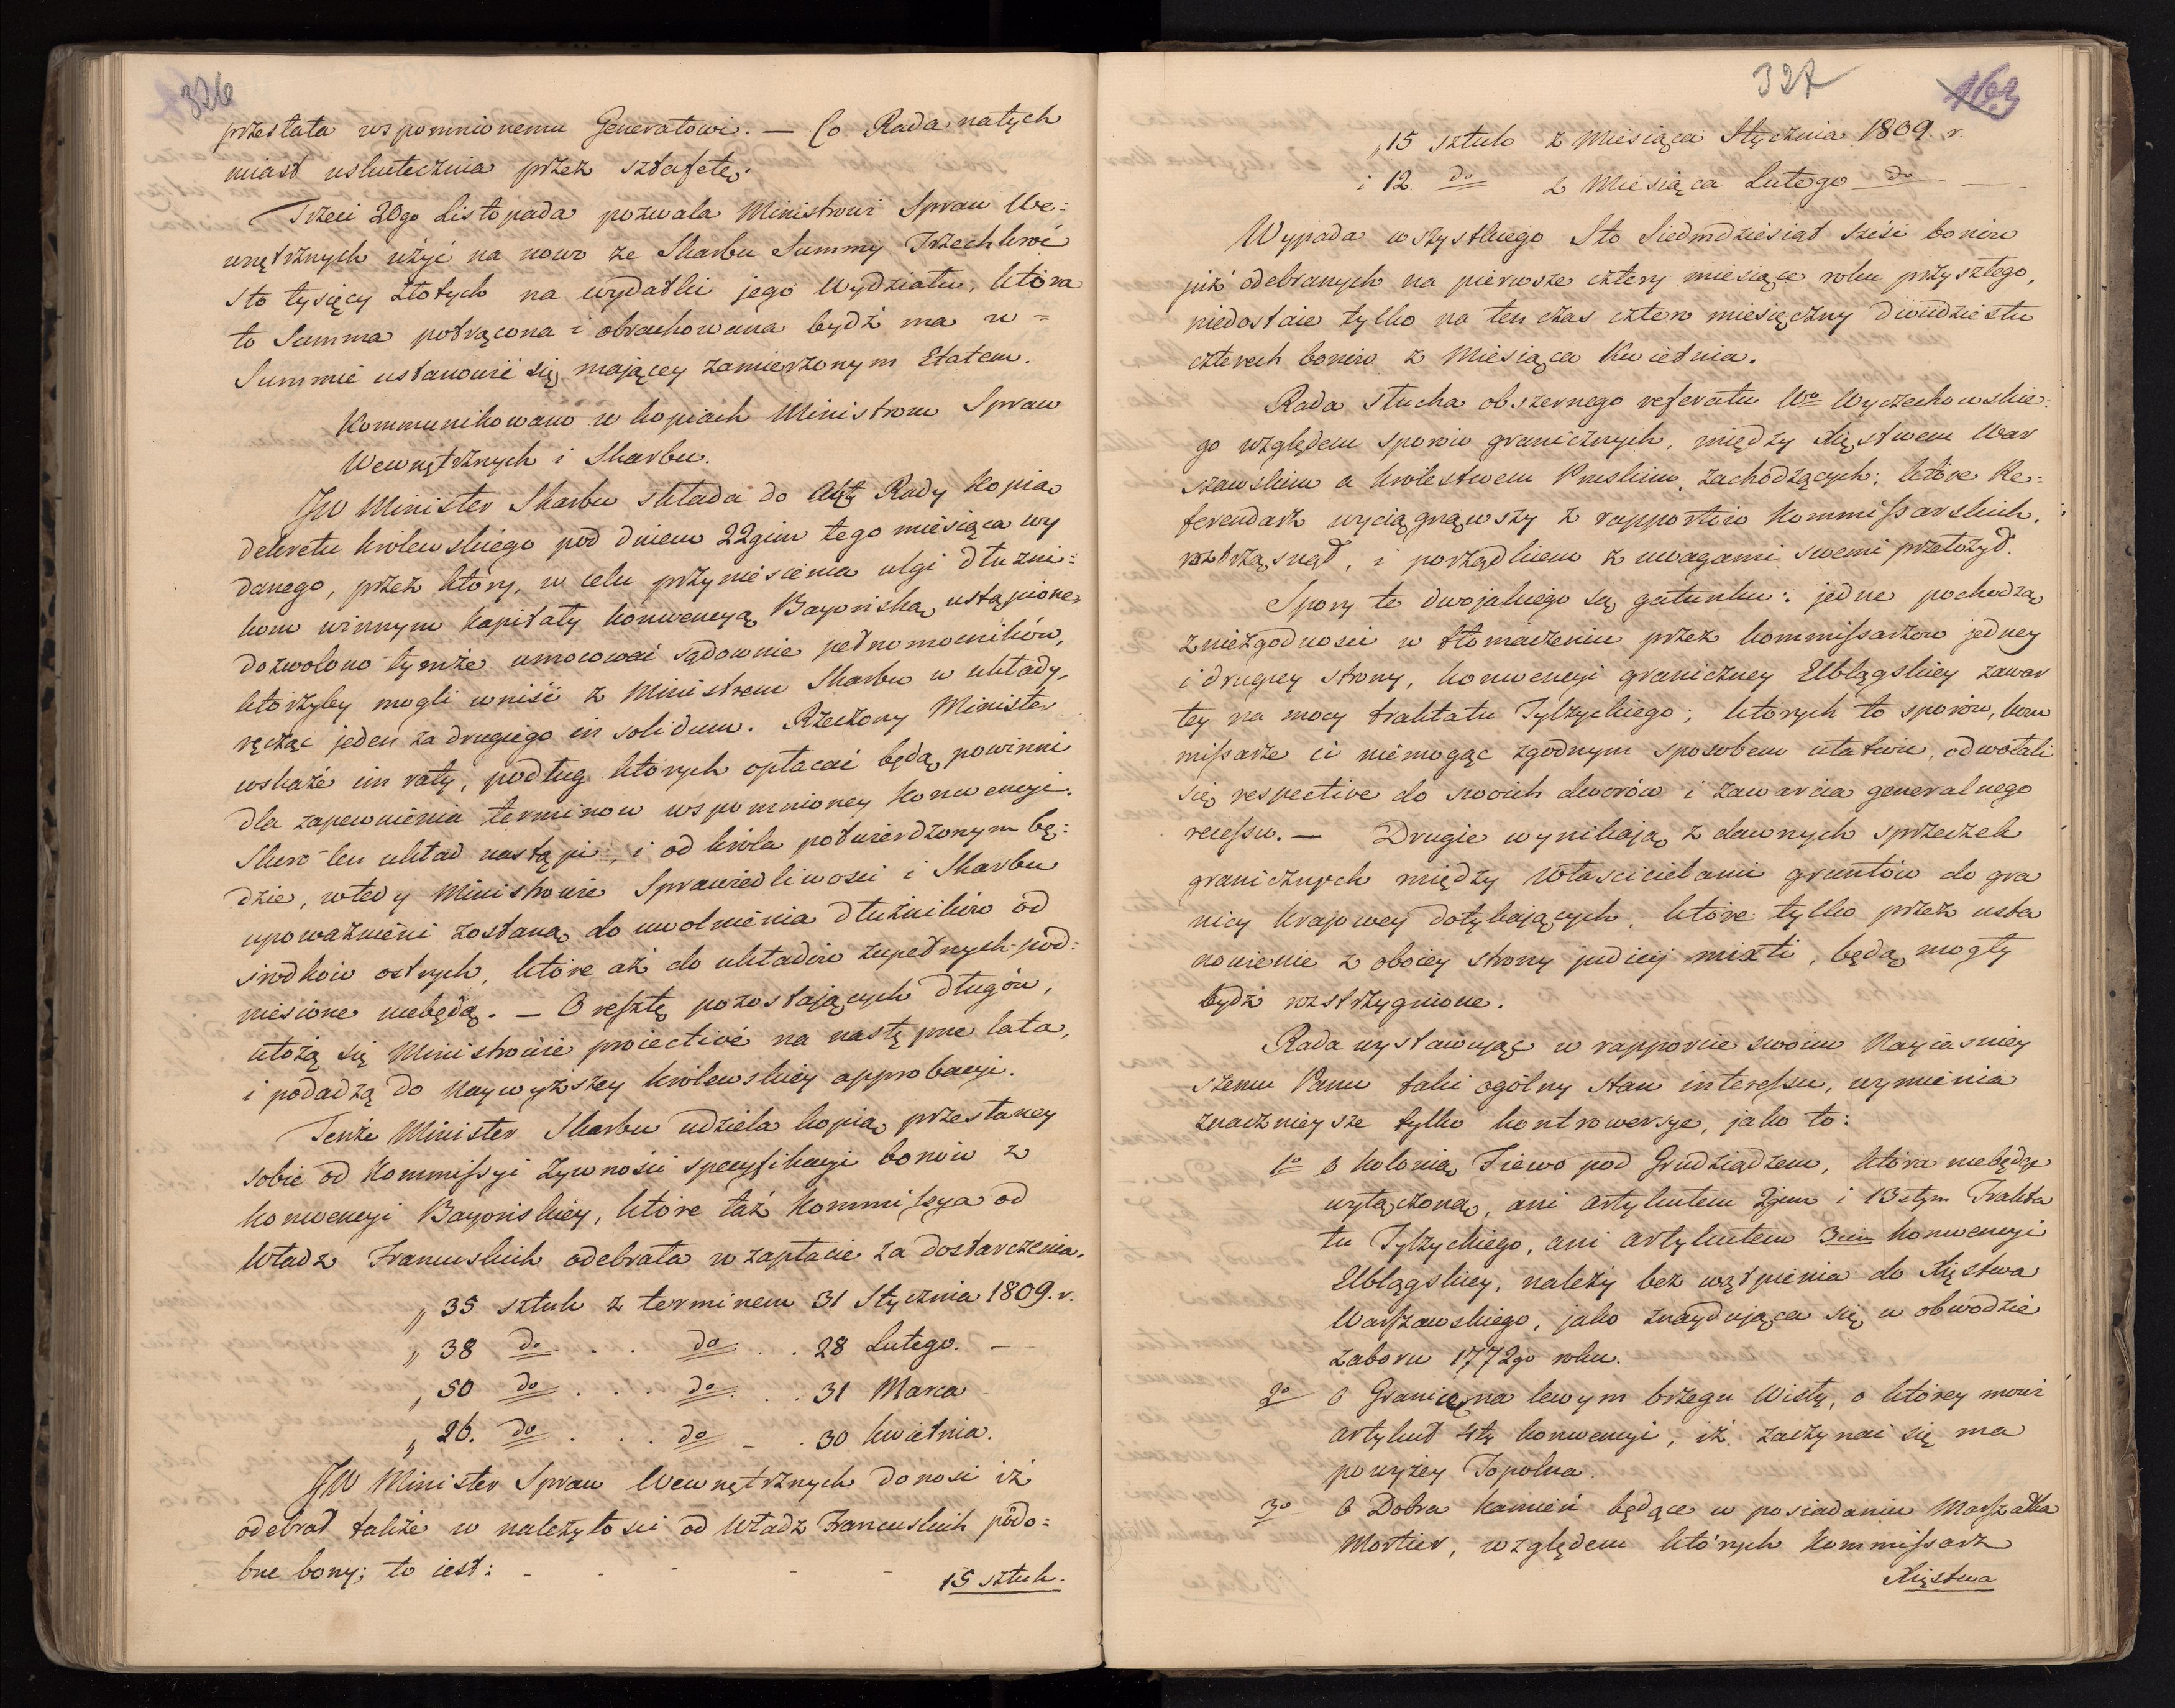 326
przesłała wspomnionemu Generałowi. — Co Rada natych
miast uskutecznia przez sztafetę.
Trzeci 20go Listopada pozwala Ministrowi Spraw We=
wnętrznych użyć na nowo ze Skarbu Summy Trzechkroć
sto tysięcy złotych na wydatki jego Wydziału, która
to Summa potrącona i obrachowana bydź ma w=
Summie ustanowić się mającey zamierzonym Etatem.
Kommunikowano w kopiach Ministrom Spraw
Wewnętrznych i Skarbu.
JW Minister Skarbu składa do Akt Rady kopią
dekretu królewskiego pod dniem 22gim tego miesiąca wy
danego, przez który, w celu przyniesienia ulgi dłużni=
kom winnym kapitały konwencyą Bayońską ustąpione,
dozwolono tymże umocować sądownie pełnomocników,
którzyby mogli wniść z Ministrem Skarbu w układy,
ręcząc jeden za drugiego in solidum. Rzeczony Minister
wskaże im raty, podług których opłacać będą powinni
dla zapewnienia terminow wspomnioney konwencyi.
Skoro ten układ nastąpi, i od króla potwierdzonym bę=
dzie, wtedy Ministrowie Sprawiedliwości i Skarbu
upoważnieni zostaną do uwolnienia dłużników od
środków ostrych, które aż do układów zupełnych pod=
niesione niebędą. — O resztę pozostających długów,
ułożą się Ministrowie proiective na następne lata,
i podadzą do Naywyższey królewskiey approbacyi.
Tenże Minister Skarbu udziela kopią przesłaney
sobie od Kommissyi Żywności specyfikacyi bonów z
konwencyi Bayońskiey, które taż Kommissya od
Władz Francuskich odebrała w zapłacie za dostarczenia.
„ 35 sztuk z terminem 31 Stycznia 1809. r.
„ 38 do . . do . . 28 Lutego. —
„ 50 do . . . do . . 31 Marca
„ 26. do . . . do . . 30 kwietnia.
JW Minister Spraw Wewnętrznych donosi iż
odebrał także w należytości od Władz Francuskich podo=
bne bony; to iest: - - - -
15 sztuk.
327
163
„15 sztuk z Miesiąca Stycznia 1809. r.
i 12. do z Miesiąca Lutego do —
Wypada wszystkiego Sto Siedmdziesiąt sześć bonów
już odebranych na pierwsze cztery miesiące roku przyszłego,
niedostaie tylko na ten czas cztero miesięczny dwudziestu
czterech bonów z Miesiąca Kwietnia.
Rada słucha obszernego referatu Wo Wyczechowskie=
go względem sporów granicznych, między Xięstwem War
szawskim a królestwem Pruskim, zachodzących; które Re=
ferendarz wyciągnąwszy z rapportów kommissarskich,
roztrząsnął, i porządkiem z uwagami swemi przełożył.
Spory te dwojakiego są gatunku: jedne pochodzą
z niezgodności w tłomaczeniu przez kommissarzow jedney
i drugiey strony, konwencyi graniczney Elblągskiey zawar
tey na mocy traktatu Tylżyckiego; których to sporów, kom
missarze ci niemogąc zgodnym sposobem ułatwić, odwołali
się respective do swoich dworów i zawarcia generalnego
recessu. — Drugie wynikają z dawnych sprzeczek
granicznych między właścicielami gruntów do gra
nicy krajowey dotykających, które tylko przez usta
nowienie z oboiey strony judicij mixti, będą mogły
bydź rozstrzygnione.
Rada wystawując w rapporcie swoim Nayiaśniey
szemu Panu taki ogólny stan interessu, wymienia
znacznieysze tylko kontrowersye, jako to:
1o O kolonią Tiewo pod Grudziądzem, która niebędąc
wyłączoną, ani artykułem 2gim i 13stym Trakta
tu Tylżyckiego, ani artykułem 3cim konwencyi
Elblągskiey, należy bez wątpienia do Xięstwa
Warszawskiego, jako znaydująca się w obwodzie
zaboru 1772go roku.
2o O Granicę na lewym brzegu Wisły, o którey mówi
artykuł 4ty konwencyi, iż zaczynać się ma
powyżey Topolna.
3o O Dobra Kamień będące w posiadaniu Marszałka
Mortier, względem których Kommissarz
Xięstwa